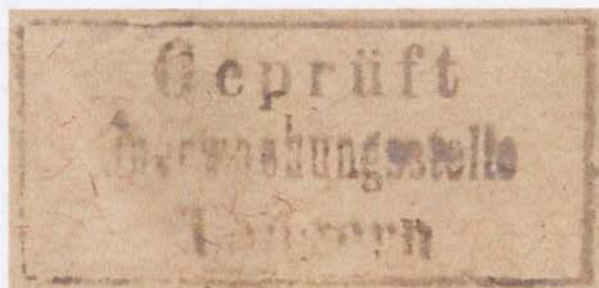 Geprüft
Überwachungsstelle